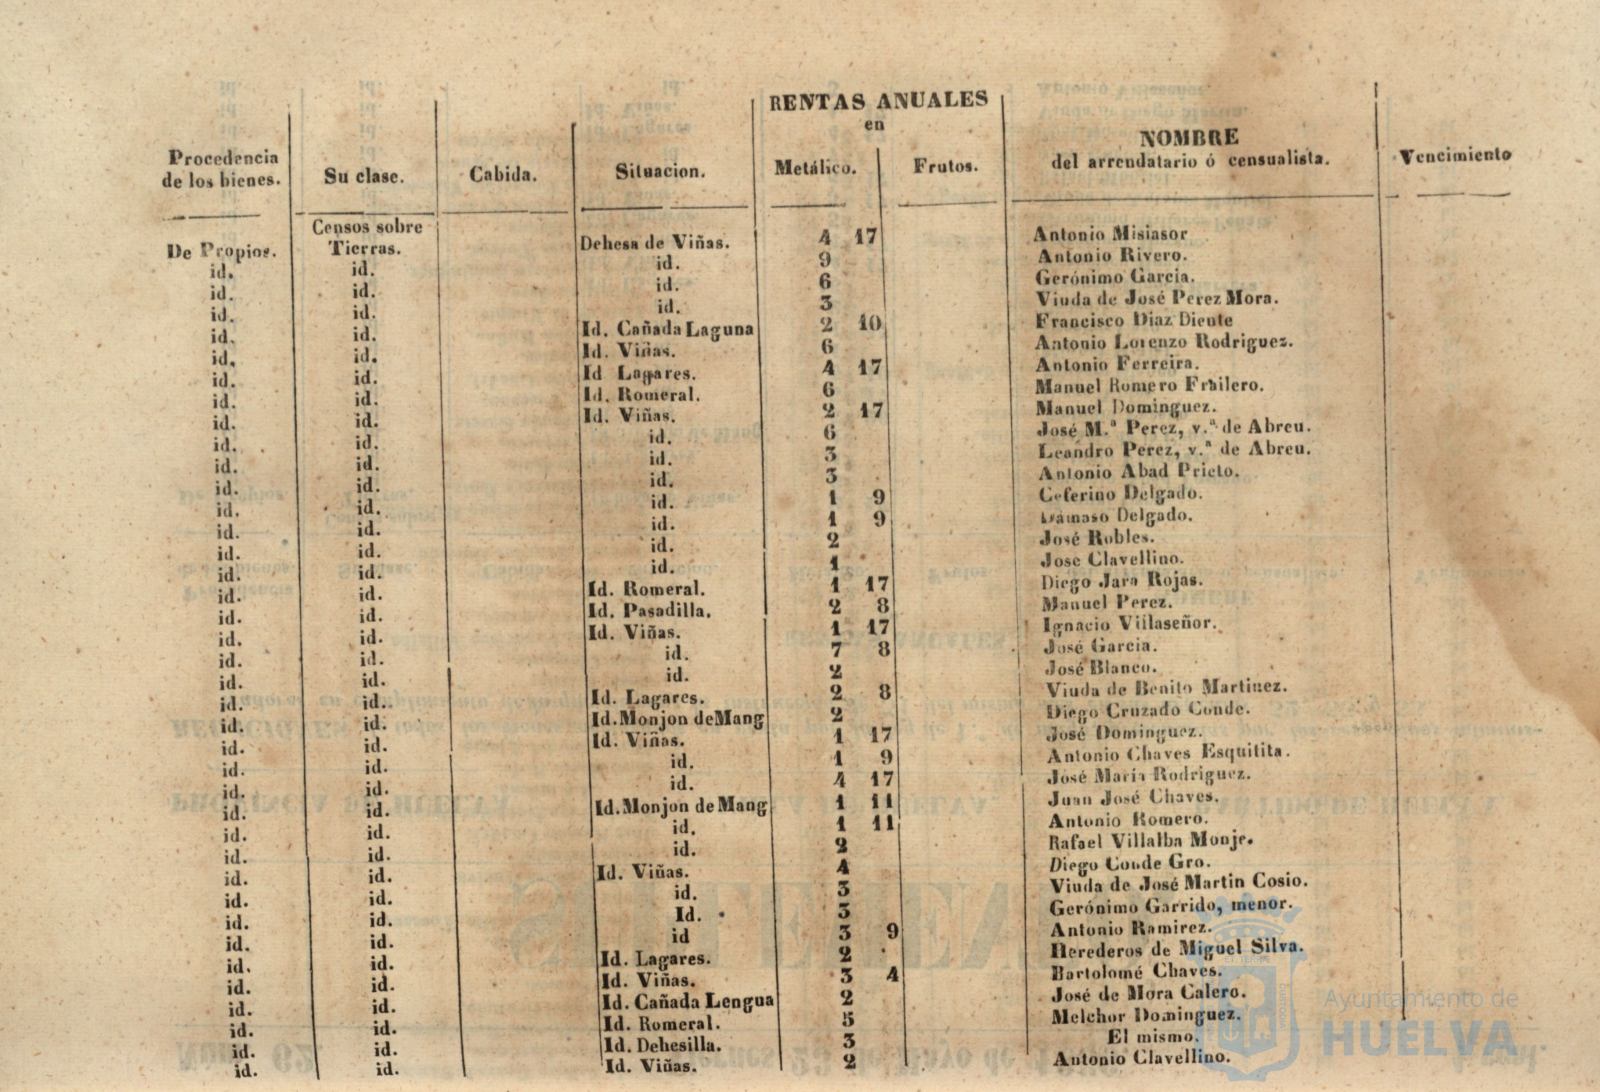 RENTAS ANUALES
en
Procedencia de los bienes. Su clase. Cabida. Situacion. Metálico. Frutos. NOMBRE del arrendatario ó censualista. Vencimiento
De Propios. Censos sobre Tierras. Dehesa de Viñas. 4 17 Antonio Misiasor
id. id. id. 9 Antonio Rivero.
id. id. id. 6 Gerónimo Garcia.
id. id. id. 3 Viuda de José Perez Mora.
id. id. Id. Cañada Laguna 2 10 Francisco Diaz Diente
id. id. Id. Viñas. 6 Antonio Lorenzo Rodriguez.
id. id. Id Lagares. 4 17 Antonio Ferreira.
id. id. Id. Romeral. 6 Manuel Romero Frailero.
id. id. Id. Viñas. 2 17 Manuel Dominguez.
id. id. id. 6 José M.ª Perez, v.ª de Abreu.
id. id. id. 3 Leandro Perez, v.ª de Abreu.
id. id. id. 3 Antonio Abad Prieto.
id. id. id. 1 9 Ceferino Delgado.
id. id. id. 1 9 Damaso Delgado.
id. id. id. 2 José Robles.
id. id. id. 1 Jose Clavellino.
id. id. Id. Romeral. 1 17 Diego Jara Rojas.
id. id. Id. Pasadilla. 2 8 Manuel Perez.
id. id. Id. Viñas. 1 17 Ignacio Villaseñor.
id. id. id. 7 8 José Garcia.
id. id. id. 2 José Blanco.
id. id. Id. Lagares. 2 8 Viuda de Benito Martinez.
id. id. Id. Monjon de Mang 2 Diego Cruzado Conde.
id. id. Id. Viñas. 1 17 José Dominguez.
id. id. id. 1 9 Antonio Chaves Esquitita.
id. id. id. 4 17 José María Rodriguez.
id. id. Id. Monjon de Mang 1 11 Juan José Chaves.
id. id. id. 1 11 Antonio Romero.
id. id. id. 2 Rafael Villalba Monje.
id. id. Id. Viñas. 4 Diego Conde Gro.
id. id. id. 3 Viuda de José Martin Cosio.
id. id. Id. 3 Gerónimo Garrido, menor.
id. id. id 3 9 Antonio Ramirez.
id. id. Id. Lagares. 2 Herederos de Miguel Silva.
id. id. Id. Viñas. 3 4 Bartolomé Chaves.
id. id. Id. Cañada Lengua 2 José de Mora Calero.
id. id. Id. Romeral. 5 Melchor Dominguez.
id. id. Id. Dehesilla. 3 El mismo.
id. id. Id. Viñas. 2 Antonio Clavellino.
Ayuntamiento de
HUELVA